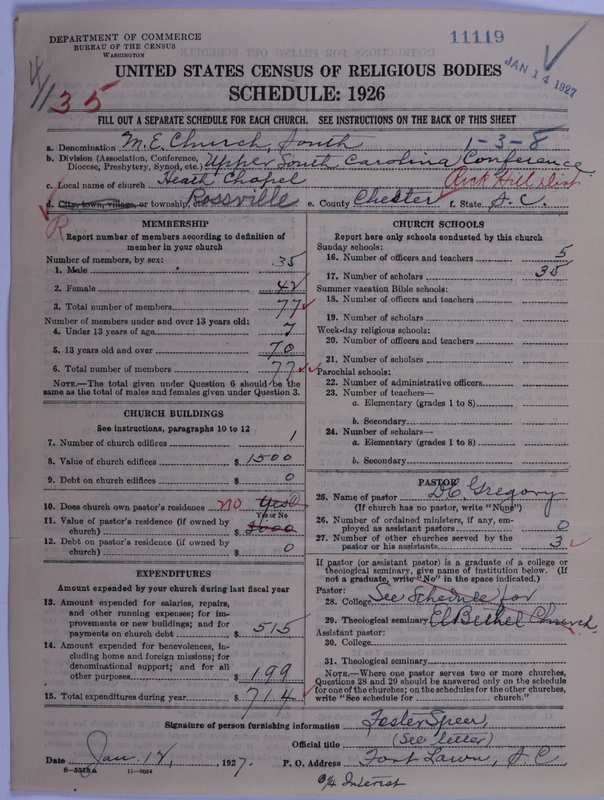 DEPARTMENT OF COMMERCE
BUREAU OF THE CENSUS
WASHINGTON
11119
JAN 14 1927
4/135
UNITED STATES CENSUS OF RELIGIOUS BODIES
SCHEDULE: 1926
FILL OUT A SEPARATE SCHEDULE FOR EACH CHURCH. SEE INSTRUCTIONS ON THE BACK OF THIS SHEET
a. Denomination M.E. Church, South 1-3-8
b. Division (Association, Conference, Diocese, Presbytery, Synod, etc.) Upper South Carolina Conference
Rock Hill Dist
c. Local name of church Heath Chapel
d. City, town, village, or township, etc. Rossville e. County Chester f. State S.C.
R
MEMBERSHIP
Report number of members according to definition of
member in your church
Number of members, by sex:
1. Male 35
2. Female 42
3. Total number of members 77
Number of members under and over 13 years old:
4. Under 13 years of age 7
5. 13 years old and over 70
6. Total number of members 77
NOTE.—The total given under Question 6 should be the
same as the total of males and females given under Question 3.
CHURCH BUILDINGS
See instructions, paragraphs 10 to 12
7. Number of church edifices 1
8. Value of church edifices $ 1500
9. Debt on church edifices $ 0
10. Does church own pastor's residence no Yes
Yes or No
11. Value of pastor's residence (if owned by
church) $ 3000
12. Debt on pastor's residence (if owned by
church) $ 0
EXPENDITURES
Amount expended by your church during last fiscal year
13. Amount expended for salaries, repairs,
and other running expenses; for im-
provements or new buildings; and for
payments on church debt $ 515
14. Amount expended for benevolences, in-
cluding home and foreign missions; for
denominational support; and for all
other purposes $ 199
15. Total expenditures during year $ 714
CHURCH SCHOOLS
Report here only schools conducted by this church
Sunday schools:
16. Number of officers and teachers 5
17. Number of scholars 35
Summer vacation Bible schools:
18. Number of officers and teachers
19. Number of scholars
Week-day religious schools:
20. Number of officers and teachers
21. Number of scholars
Parochial schools:
22. Number of administrative officers
23. Number of teachers—
a. Elementary (grades 1 to 8)
b. Secondary
24. Number of scholars—
a. Elementary (grades 1 to 8)
b. Secondary
PASTOR
25. Name of pastor Gregory
(If church has no pastor, write "None")
26. Number of ordained ministers, if any, em-
ployed as assistant pastors 0
27. Number of other churches served by the
pastor or his assistants 3
If pastor (or assistant pastor) is a graduate of a college or
theological seminary, give name of institution below. (If
not a graduate, write "No" in the space indicated.)
Pastor:
28. College See Schedule for
29. Theological seminary El Bethel Church
Assistant pastor:
30. College
31. Theological seminary
NOTE.—Where one pastor serves two or more churches,
Questions 28 and 29 should be answered only on the schedule
for one of the churches; on the schedules for the other churches,
write "See schedule for church."
Signature of person furnishing information Foster Speer
Official title (See letter)
Date Jan. 12, 1927. P. O. Address Fort Lawn, S.C.
8-5518a 11-9054
Interest